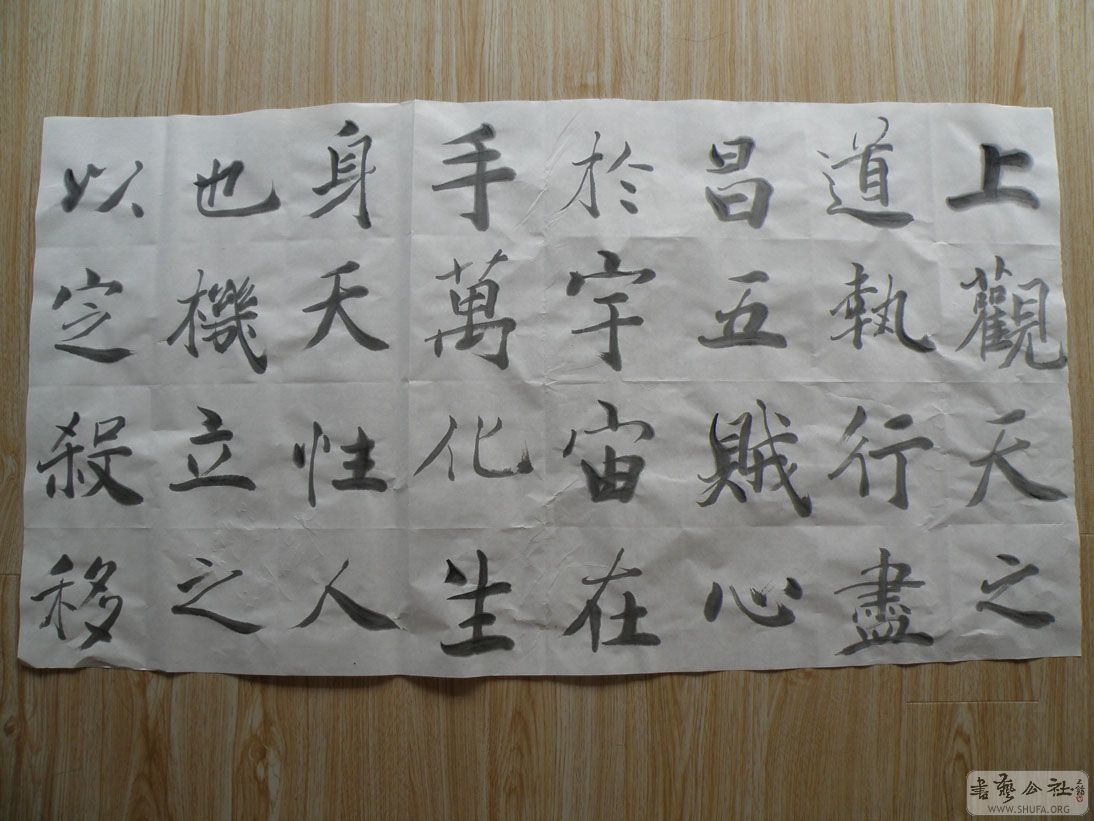 上觀天之
道執行盡
昌五賊心
於宇宙在
手萬化生
身天性人
也機立之
以定殺移
書藝公社
WWW.SHUFA.ORG